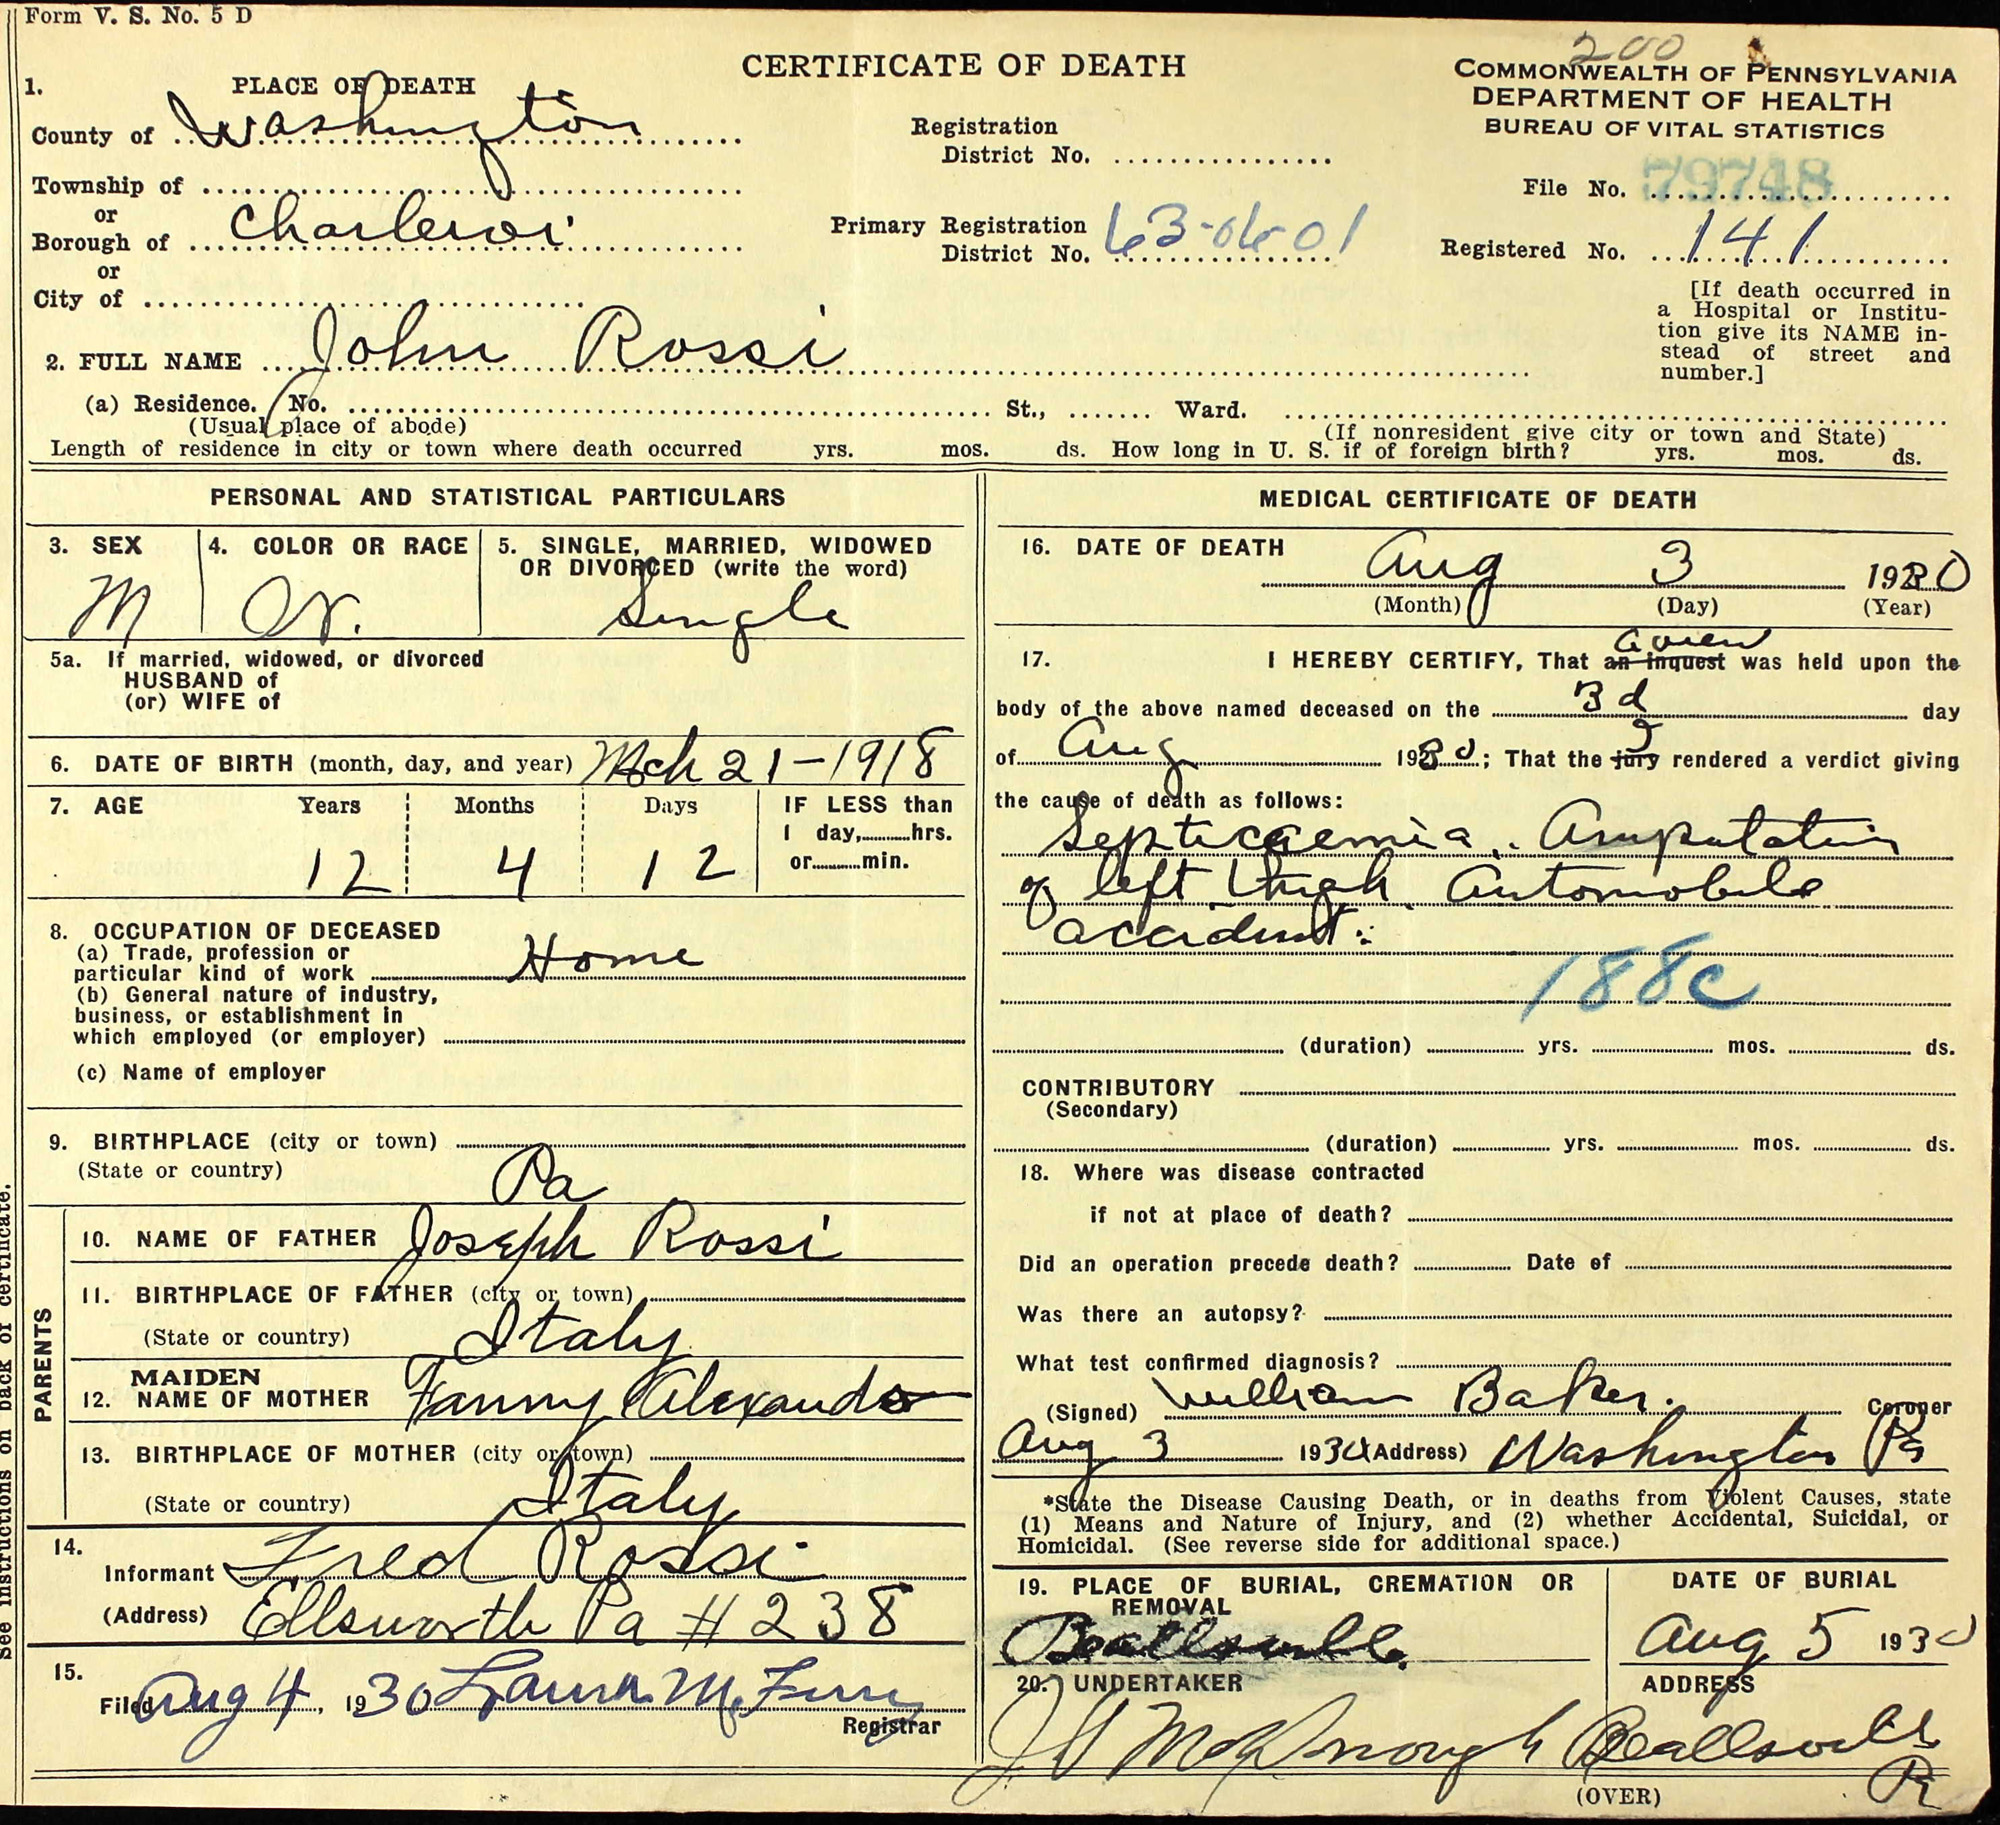 Form V. S. No. 5 D
200
CERTIFICATE OF DEATH
COMMONWEALTH OF PENNSYLVANIA
DEPARTMENT OF HEALTH
BUREAU OF VITAL STATISTICS
1. PLACE OF DEATH
County of Washington
Registration District No.
File No. 79748
Township of
or
Borough of Charleroi
Primary Registration District No. 63-06-01
Registered No. 141
or
City of
[If death occurred in
a Hospital or Institu-
tion give its NAME in-
stead of street and
number.]
2. FULL NAME John Rossi
(a) Residence. No. St., Ward.
(Usual place of abode) (If nonresident give city or town and State)
Length of residence in city or town where death occurred yrs. mos. ds. How long in U. S. if of foreign birth? yrs. mos. ds.
PERSONAL AND STATISTICAL PARTICULARS
3. SEX
M
4. COLOR OR RACE
W.
5. SINGLE, MARRIED, WIDOWED
OR DIVORCED (write the word)
Single
5a. If married, widowed, or divorced
HUSBAND of
(or) WIFE of
6. DATE OF BIRTH (month, day, and year) Mch 21-1918
7. AGE Years Months Days IF LESS than
1 day, hrs.
or min.
12 4 12
8. OCCUPATION OF DECEASED
(a) Trade, profession or
particular kind of work Home
(b) General nature of industry,
business, or establishment in
which employed (or employer)
(c) Name of employer
9. BIRTHPLACE (city or town)
(State or country) Pa
PARENTS
10. NAME OF FATHER Joseph Rossi
11. BIRTHPLACE OF FATHER (city or town)
(State or country) Italy
MAIDEN
12. NAME OF MOTHER Fanny
13. BIRTHPLACE OF MOTHER (city or town)
(State or country) Italy
14.
Informant Fred Rossi
(Address) Ellsworth Pa # 238
15.
Filed Aug 4, 1930 Laura
Registrar
MEDICAL CERTIFICATE OF DEATH
16. DATE OF DEATH Aug 3 1930
(Month) (Day) (Year)
17. I HEREBY CERTIFY, That an inquest a view was held upon the
body of the above named deceased on the 3d day
of Aug 1930; That the jury I rendered a verdict giving
the cause of death as follows:
Septicaemia. Amputation
of left thigh. Automobile
accident.
188c
(duration) yrs. mos. ds.
CONTRIBUTORY
(Secondary)
(duration) yrs. mos. ds.
18. Where was disease contracted
if not at place of death?
Did an operation precede death? Date of
Was there an autopsy?
What test confirmed diagnosis?
(Signed) William Baker. Coroner
Aug 3 1930 (Address) Washington Pa
*State the Disease Causing Death, or in deaths from Violent Causes, state
(1) Means and Nature of Injury, and (2) whether Accidental, Suicidal, or
Homicidal. (See reverse side for additional space.)
19. PLACE OF BURIAL, CREMATION OR
REMOVAL
Beallsville.
DATE OF BURIAL
Aug 5 1930
20. UNDERTAKER
McDonough
ADDRESS
Beallsville
Pa
(OVER)
See instructions on back of certificate.